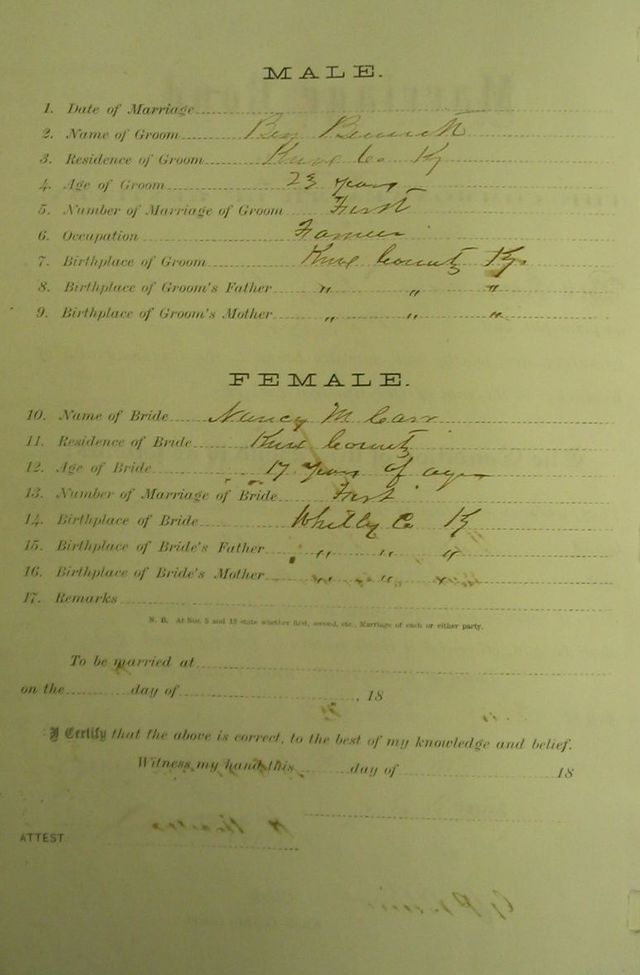 MALE.
1. Date of Marriage
2. Name of Groom Ben Bennett
3. Residence of Groom Knox Co Ky
4. Age of Groom 23 years
5. Number of Marriage of Groom First
6. Occupation Farmer
7. Birthplace of Groom Knox County Ky.
8. Birthplace of Groom's Father " " "
9. Birthplace of Groom's Mother " " "
FEMALE.
10. Name of Bride Nancy M Carr
11. Residence of Bride Knox County
12. Age of Bride 17 years of age
13. Number of Marriage of Bride First
14. Birthplace of Bride Whitley Co Ky
15. Birthplace of Bride's Father " " "
16. Birthplace of Bride's Mother " " "
17. Remarks
N. B. At Nos. 5 and 13 state whether first, second, etc., Marriage of each or either party.
To be married at
on the day of , 18
I Certify that the above is correct, to the best of my knowledge and belief.
Witness my hand this day of 18
ATTEST